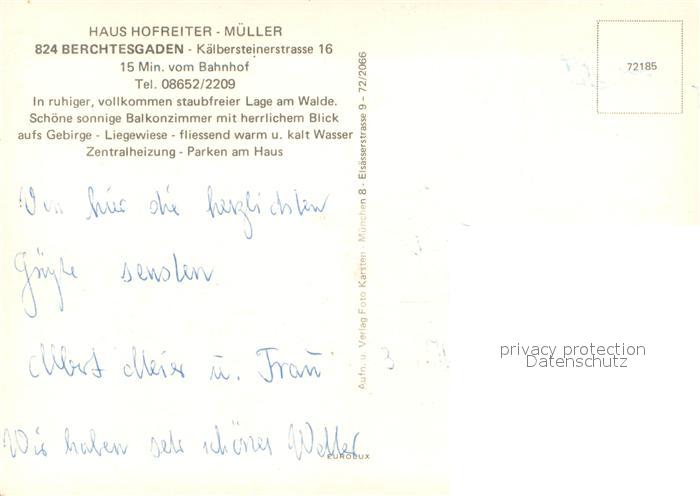 HAUS HOFREITER - MÜLLER
824 BERCHTESGADEN - Kälbersteinerstrasse 16
15 Min. vom Bahnhof
Tel. 08652/2209
In ruhiger, vollkommen staubfreier Lage am Walde.
Schöne sonnige Balkonzimmer mit herrlichem Blick
aufs Gebirge - Liegewiese - fliessend warm u. kalt Wasser
Zentralheizung - Parken am Haus
Von hier die herzlichsten
Grüße senden
Albert Meier u. Frau
Wir haben sehr schönes Wetter
EUROLUX
Aufn. u. Verlag Foto Karsten - München 8 - Elsässerstrasse 9 - 72/2066
72185
3
privacy protection
Datenschutz